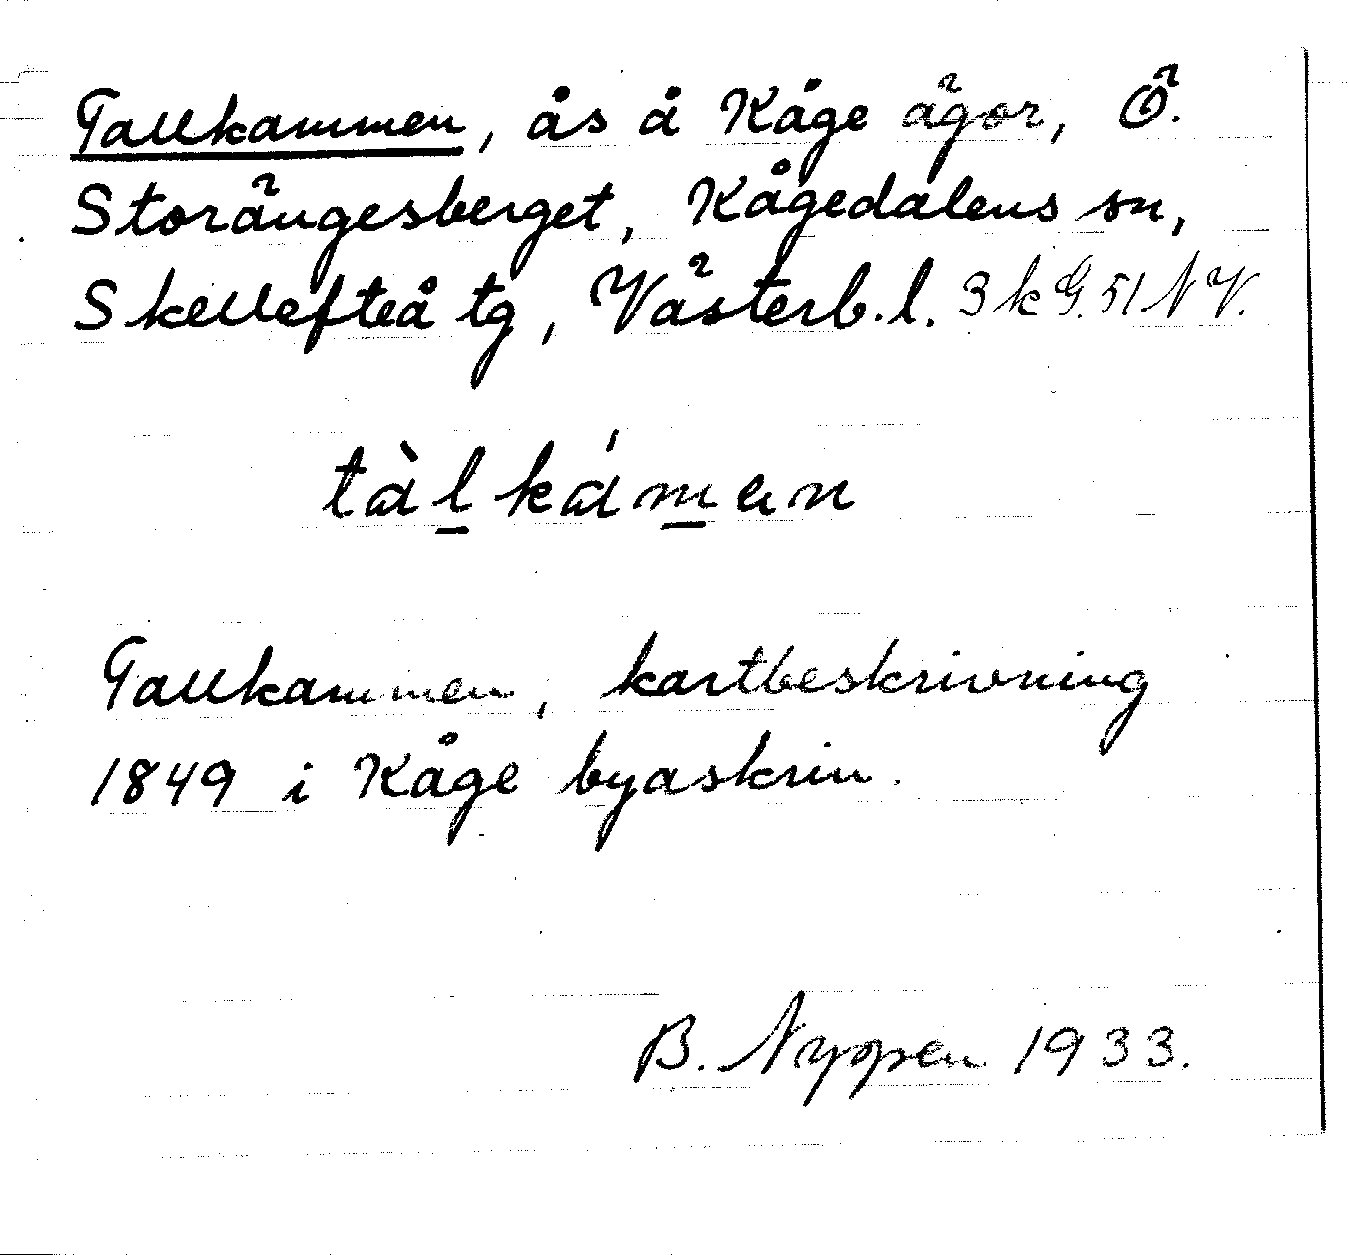 Tallkammen, ås å Kåge ägor, Ö.
Storängesberget, Kågedalens sn,
Skellefteå tg, Västerb. l. 3 k G. 51 N V.
tàlkámen
Tallkammen, kartbeskrivning
1849 i Kåge byaskrin.
B. Nyppen 1933.